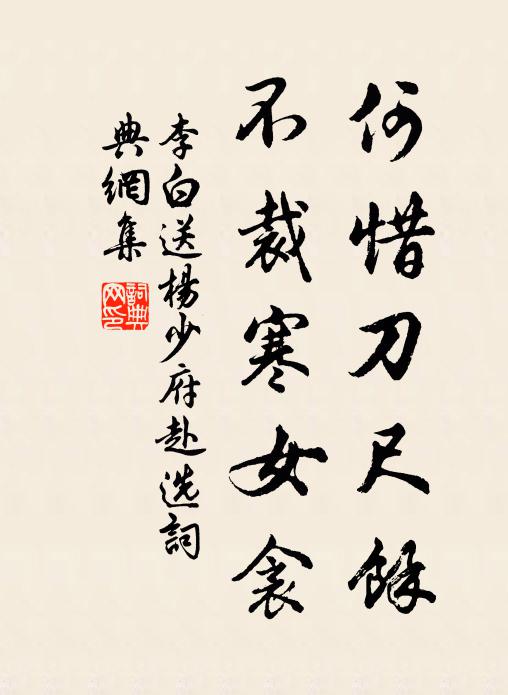 何惜刀尺餘
不裁寒女衾
李白送楊少府赴选詞
典網集
詞典
网印